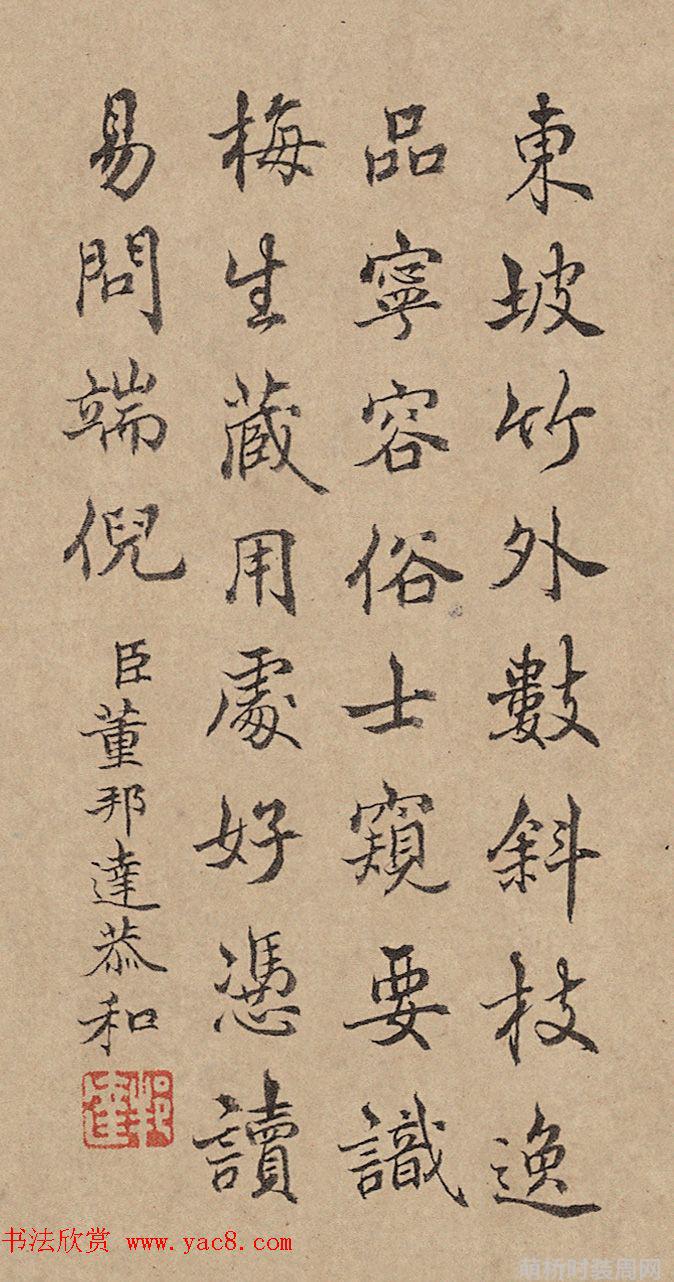 東坡竹外數斜枝逸
品寧容俗士窺要識
梅生蔵用處好憑讀
易問端倪
臣董邦達恭和
邦達
书法欣赏 www.yac8.com
萌析时装周网